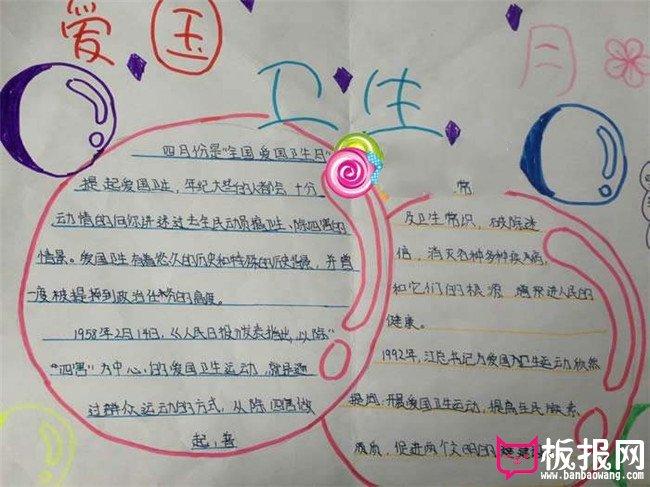 爱国卫生月
四月份是"全国爱国卫生月"
提起爱国卫生,年纪大些的人都会十分
动情的向你讲述过去全民动员搞卫生、除四害的
情景。爱国卫生有着悠久的历史和特殊的历史背景,并曾
一度被提到政治任务的高度。
1958年2月14日,《人民日报》发表指出,以除
"四害"为中心的爱国卫生运动,就是通
过群众运动的方式,从除四害做
起,普
常
及卫生常识,破除迷
信,消灭各种多种疾病
和它们的根源,增进人民的
健康。
1992年,江总书记为爱国卫生运动欣然
题词:开展爱国卫生运动,提高全民
素质,促进两个文明的
板报网
www.banbaowang.com